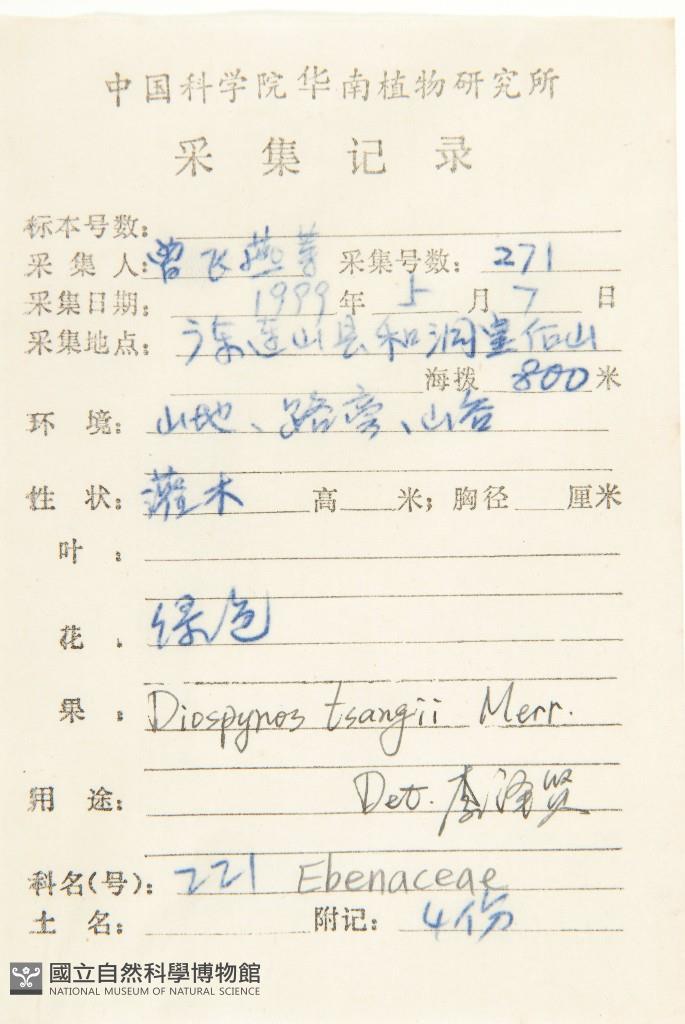 中国科学院华南植物研究所
采集记录
标本号数：
采集人：曾飞燕等 采集号数：271
采集日期：1999年5月7日
采集地点：广东连山县和洞皇后山
海拨800米
环境：山地、路旁、山谷
性状：灌木 高 米；胸径 厘米
叶：
花：绿色
果：Diospyros tsangii Merr.
用途：Det. 李泽贤
科名(号)：221 Ebenaceae
土名： 附记：4份
國立自然科學博物館
NATIONAL MUSEUM OF NATURAL SCIENCE